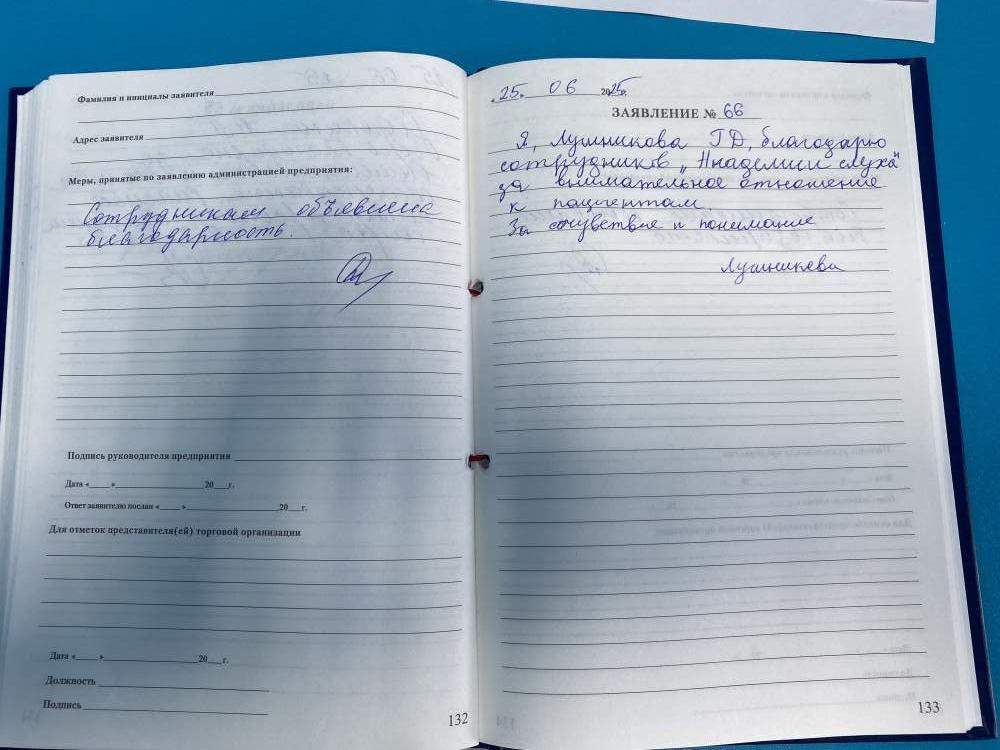 Фамилия и инициалы заявителя
Адрес заявителя
Меры, принятые по заявлению администрацией предприятия:
Сотрудникам объявлена
благодарность.
Подпись руководителя предприятия
Дата «___» ___ 20__г.
Ответ заявителю послан «___» ___ 20__г.
Для отметок представителя(ей) торговой организации
Дата «___» ___ 20__г.
Должность
Подпись
132
«25» 06 2025г.
ЗАЯВЛЕНИЕ № 66
Я, Лушникова Г.Д, благодарю
сотрудников „Академии слуха"
за внимательное отношение
к пациентам.
За сочувствие и понимание
Лушникова
133